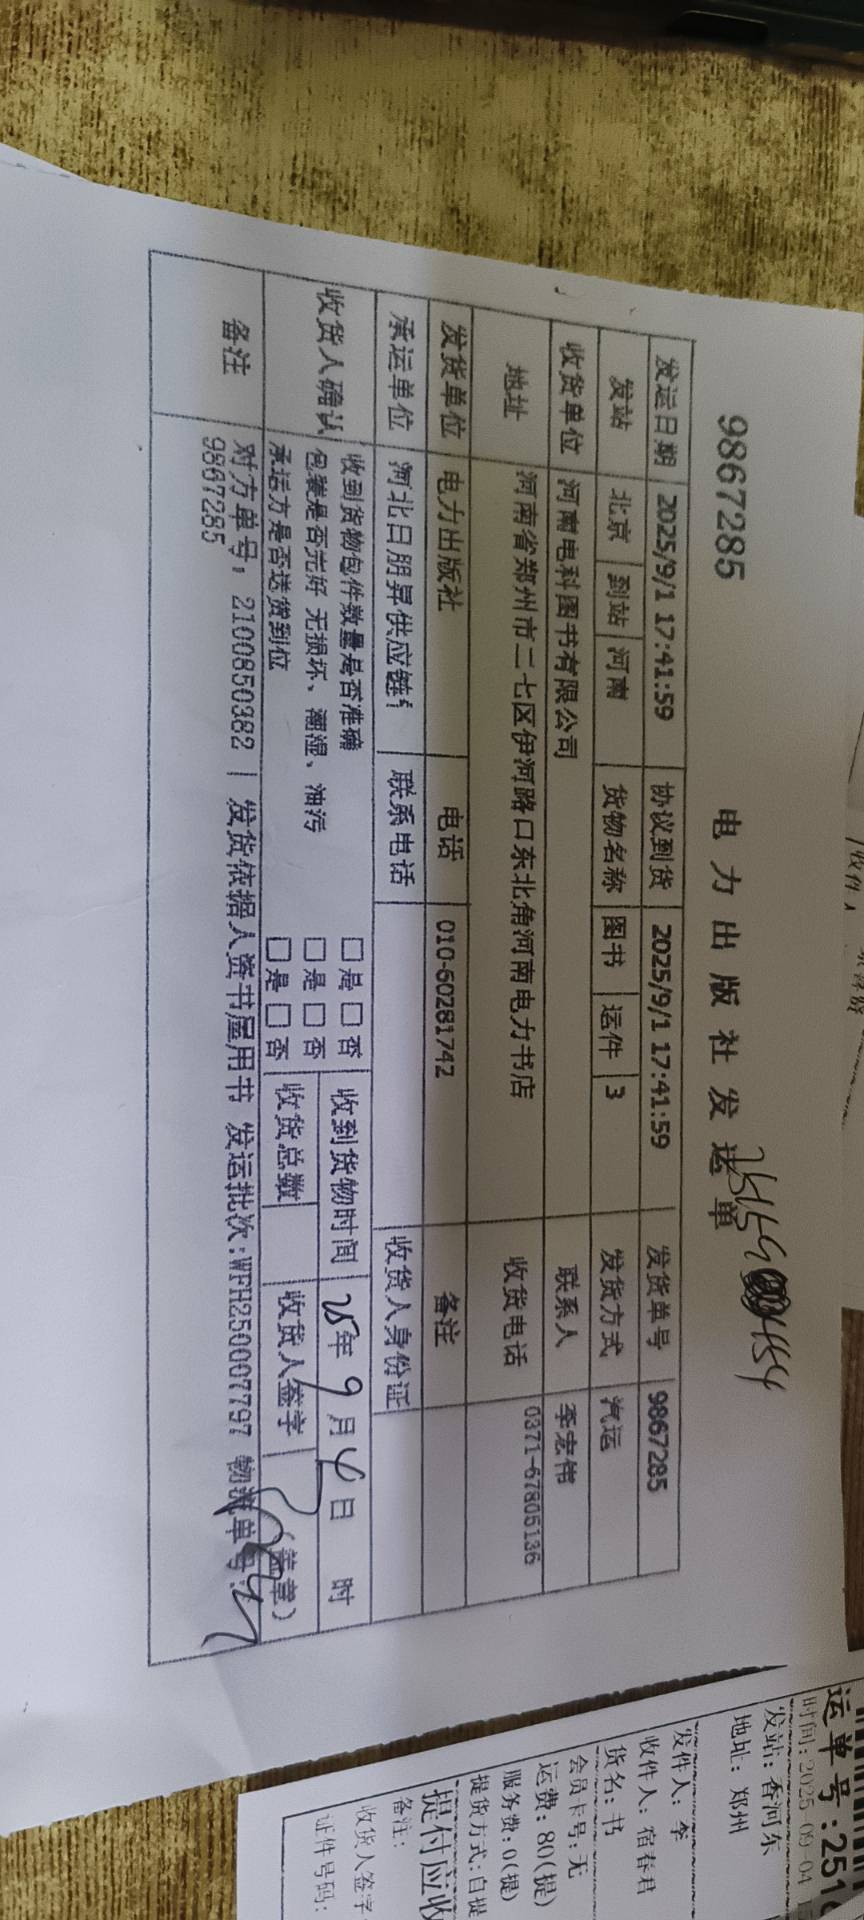 9867285
电力出版社发运单
发运日期 2025/9/1 17:41:59 协议到货 2025/9/1 17:41:59 发货单号 9867285
发站 北京 到站 河南 货物名称 图书 运件 3 发货方式 汽运
收货单位 河南电科图书有限公司 联系人 李宏伟
地址 河南省郑州市二七区伊河路口东北角河南电力书店 收货电话 0371-67805136
发货单位 电力出版社 电话 010-60281742 备注
承运单位 河北日朋昇供应链 联系电话 收货人身份证
收货人确认 收到货物包件数量是否准确 □是 □否 收到货物时间 25年9月4日 时
包装是否完好 无损坏、潮湿、油污 □是 □否
承运方是否送货到位 □是 □否 收货总数 收货人签字 (盖章)
备注 对方单号：2100850382 | 发货依据人资书屋用书 发运批次:WFH250007797 物流单号:
9867285
运单号:251
时间:2025-09-04 1
发站:香河东
地址:郑州
发件人:李
收件人:宿春君
货名:书
会员卡号:无
运费:80(提)
服务费:0(提)
提货方式:自提
提付应收
备注:
收货人签字
证件号码:
收件人